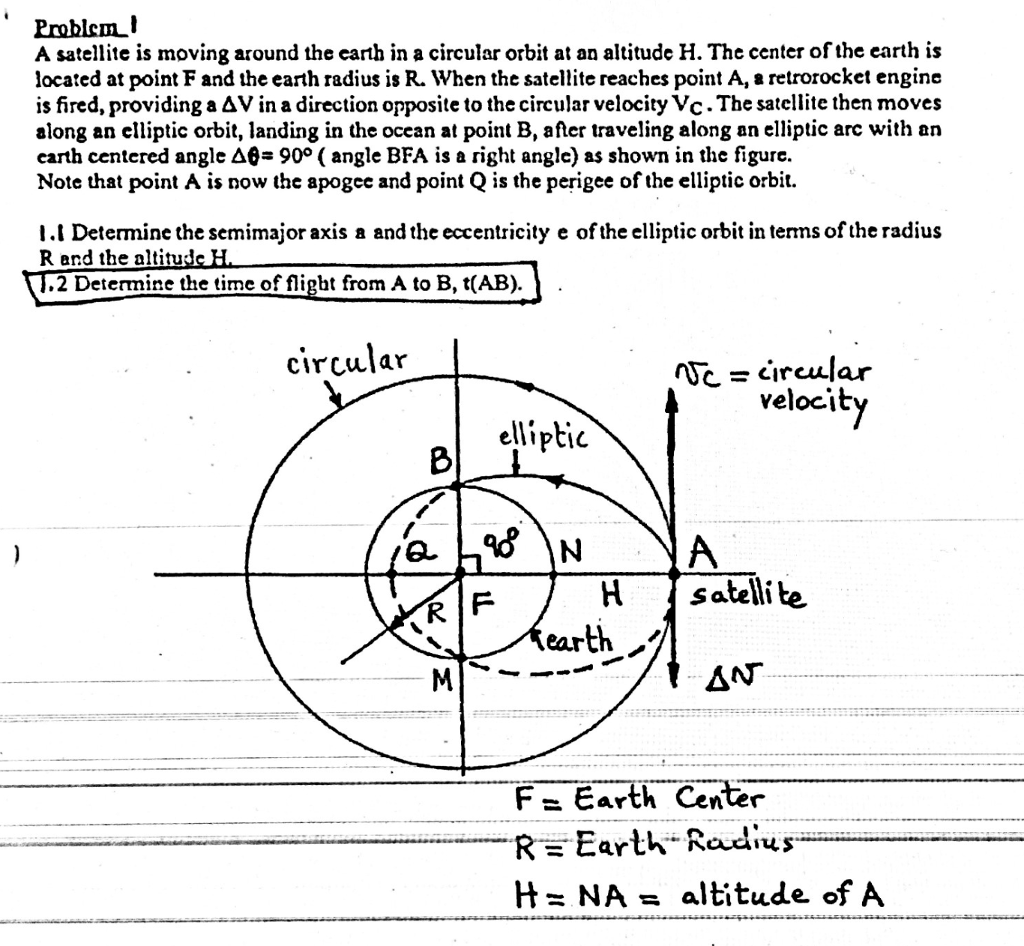 Problem 1
A satellite is moving around the earth in a circular orbit at an altitude H. The center of the earth is
located at point F and the earth radius is R. When the satellite reaches point A, a retrorocket engine
is fired, providing a ΔV in a direction opposite to the circular velocity Vc. The satellite then moves
along an elliptic orbit, landing in the ocean at point B, after traveling along an elliptic arc with an
earth centered angle Δθ= 90° ( angle BFA is a right angle) as shown in the figure.
Note that point A is now the apogee and point Q is the perigee of the elliptic orbit.
1.1 Determine the semimajor axis a and the eccentricity e of the elliptic orbit in terms of the radius
R and the altitude H.
1.2 Determine the time of flight from A to B, t(AB).
circular
Vc = circular
velocity
elliptic
B
Q
90°
N
A
R
F
H
satellite
earth
M
ΔV
F = Earth Center
R = Earth Radius
H = NA = altitude of A